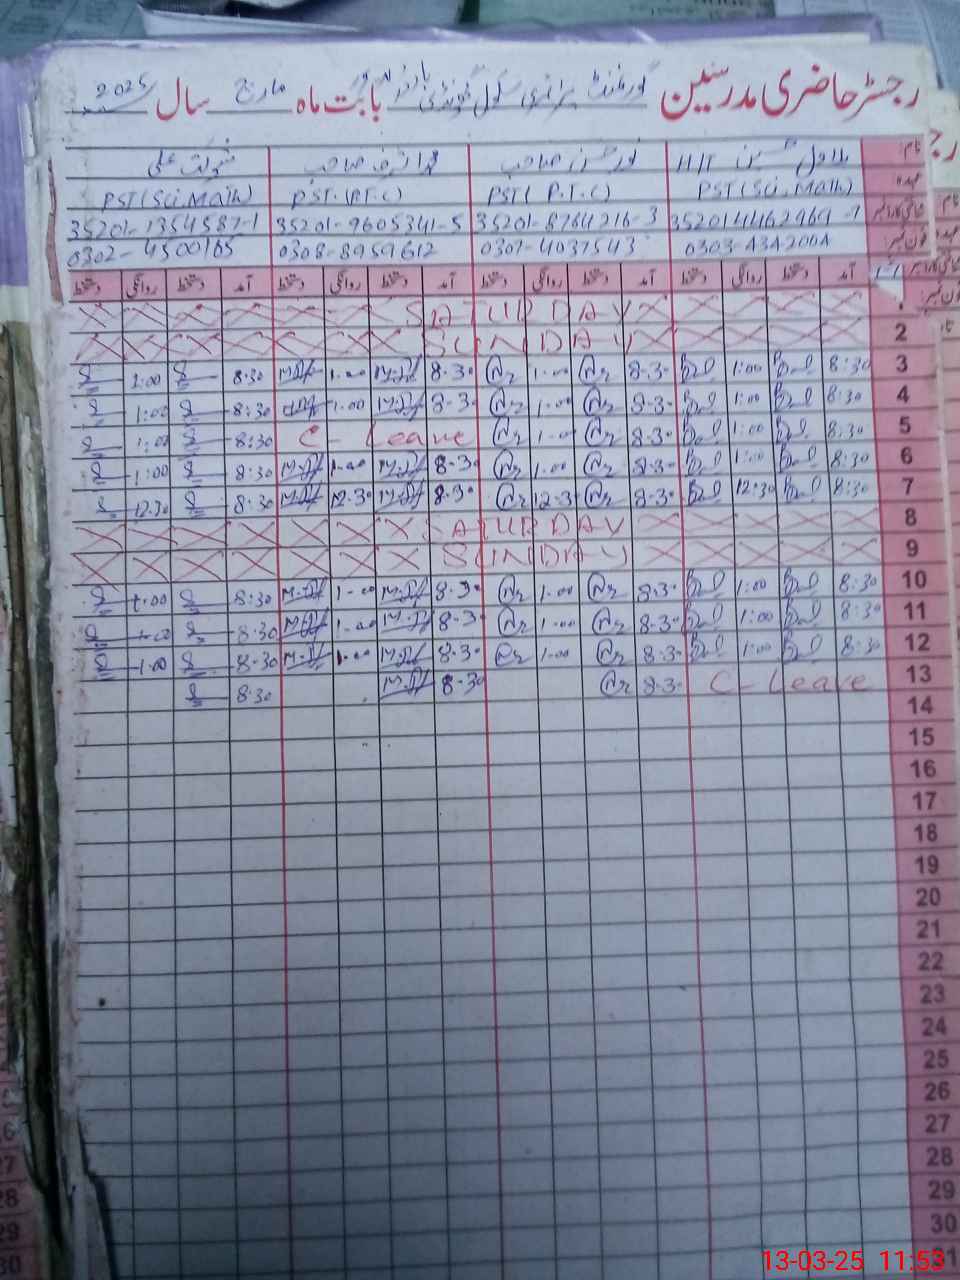 رجسٹر حاضری مدرسین گورنمنٹ پرائمری سکول بابت ماہ مارچ سال 2025
نام: H/T شوکت علی
عہدہ PST (Sci. Math) PST (P.T.C) PST. (P.T.C) PST (Sci. Math)
352014462969-7 35201-8764216-3 35201-9605341-5 35201-1354587-1
فون نمبر: 0303-4342004 0307-4037543 0308-8959612 0302-4500165
آمد دستخط روانگی دستخط آمد دستخط روانگی دستخط آمد دستخط روانگی دستخط آمد دستخط روانگی دستخط
1 SATURDAY
2 SUNDAY
3 8:30 1:00 8-30 1-00 8-30 1-00 8:30 1:00
4 8:30 1:00 8-30 1-00 8-30 1-00 8:30 1:00
5 8:30 1:00 8-30 1-00 C-Leave 8:30 1:00
6 8:30 1:00 8-30 1-00 8-30 1-00 8:30 1:00
7 8:30 12:30 8-30 12-30 8-30 12-30 8:30 12:30
8 SATURDAY
9 SUNDAY
10 8:30 1:00 8-30 1-00 8-30 1-00 8:30 1:00
11 8:30 1:00 8-30 1-00 8-30 1-00 8:30 1:00
12 8:30 1:00 8-30 1-00 8-30 1-00 8-30 1:00
13 C-Leave 8-30 8-30 8:30
14
15
16
17
18
19
20
21
22
23
24
25
26
27
28
29
30
31
13-03-25 11:53